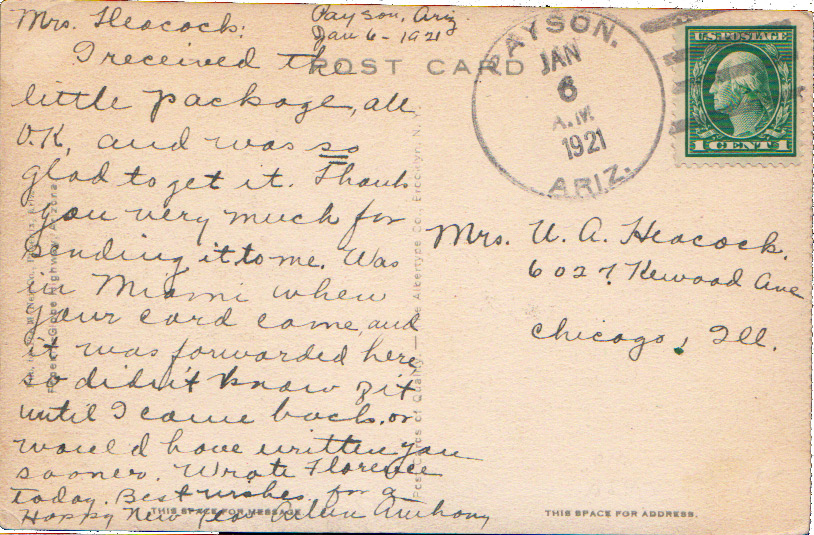 Mrs. Heacock:
Payson, Ariz
Jan 6 - 1921
POST CARD
I received the
little package, all
O.K, and was so
glad to get it. Thank
you very much for
sending it to me. Was
in Miami when
your card came, and
it was forwarded here
so didn't know of it
until I came back, or
would have written you
sooner. Wrote Florence
today. Best wishes for a
Happy New Year Anthony
THIS SPACE FOR MESSAGE
PAYSON,
JAN
6
A.M.
1921
ARIZ.
U.S. POSTAGE
1 CENT 1
Mrs. U. A. Heacock.
6027 Kewood Ave
Chicago, Ill.
THIS SPACE FOR ADDRESS.
Post Cards of Quality. — The Albertype Co., Brooklyn, N.Y.
Globe Highway, Arizona